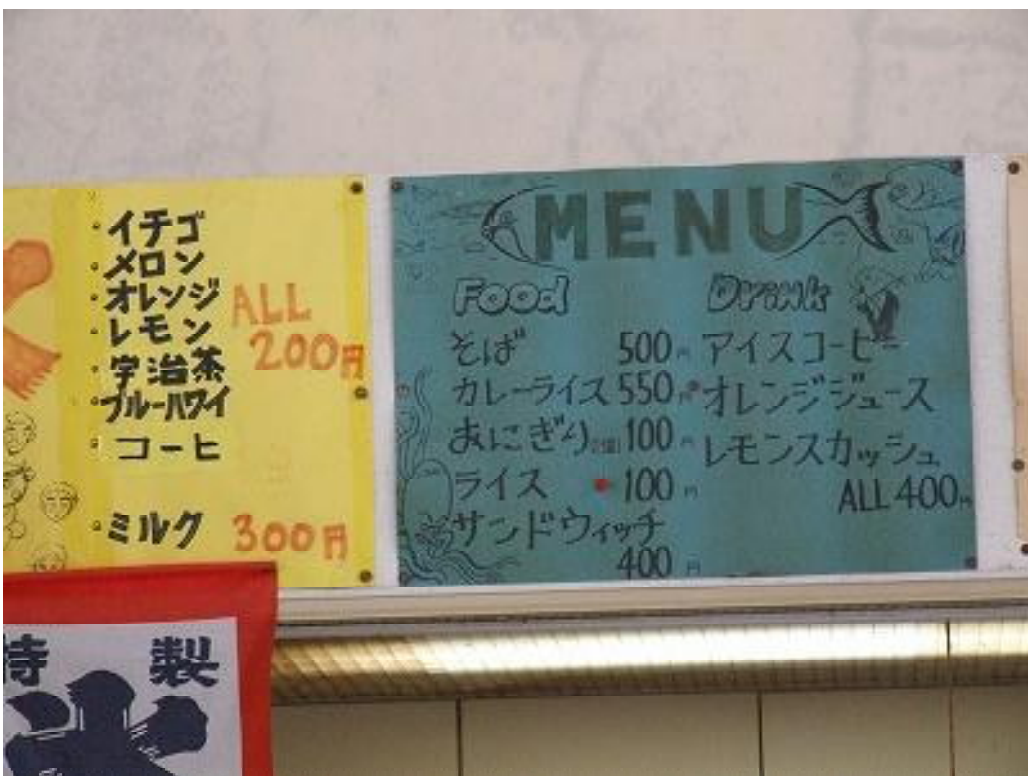 イチゴ
メロン
オレンジ
レモン
宇治茶
ブルーハワイ
コーヒ
ALL
200円
ミルク 300円
MENU
Food
そば 500円
カレーライス 550円
おにぎり 100円
ライス 100円
サンドウィッチ
400円
Drink
アイスコーヒー
オレンジジュース
レモンスカッシュ
ALL 400円
特製
氷